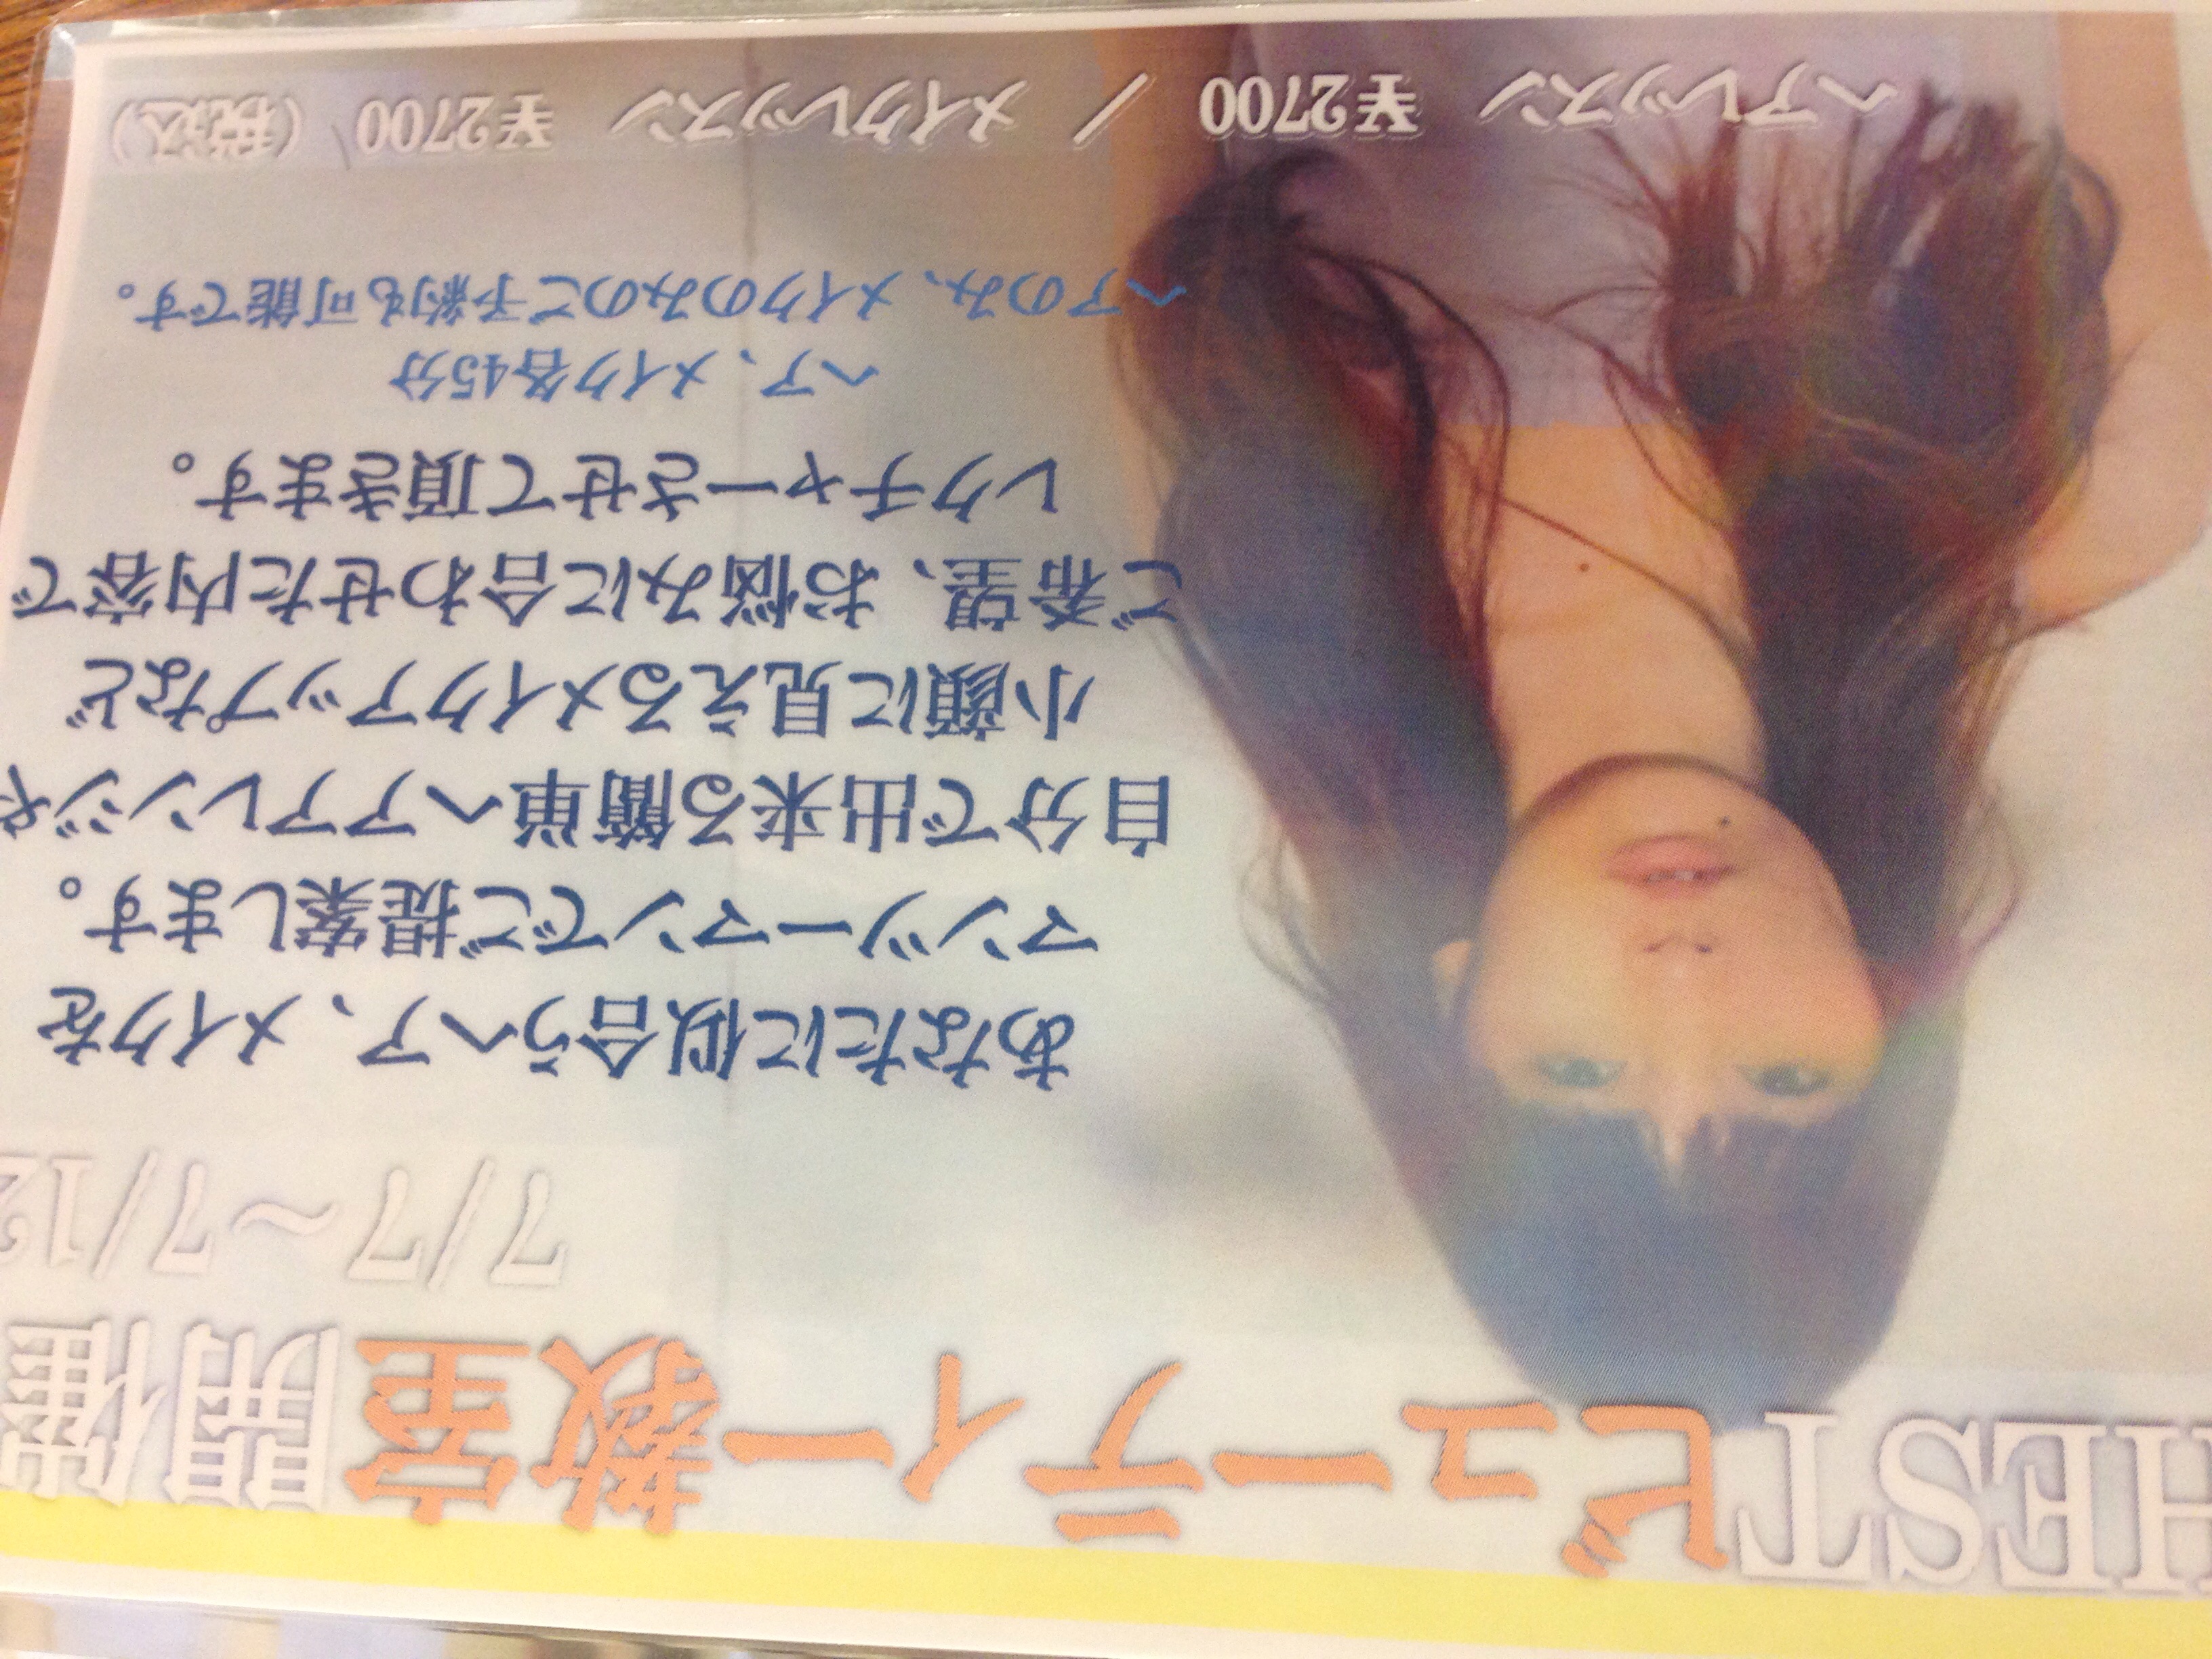 HESTビューティー教室開催
7/7～7/12
あなたに似合うヘア、メイクを
マンツーマンでご提案します。
自分で出来る簡単ヘアアレンジや
小顔に見えるメイクアップなど
ご希望、お悩みに合わせた内容で
レクチャーさせて頂きます。
ヘア、メイク各45分
ヘアのみ、メイクのみのご予約も可能です。
ヘアレッスン ￥2700 / メイクレッスン ￥2700 (税込)